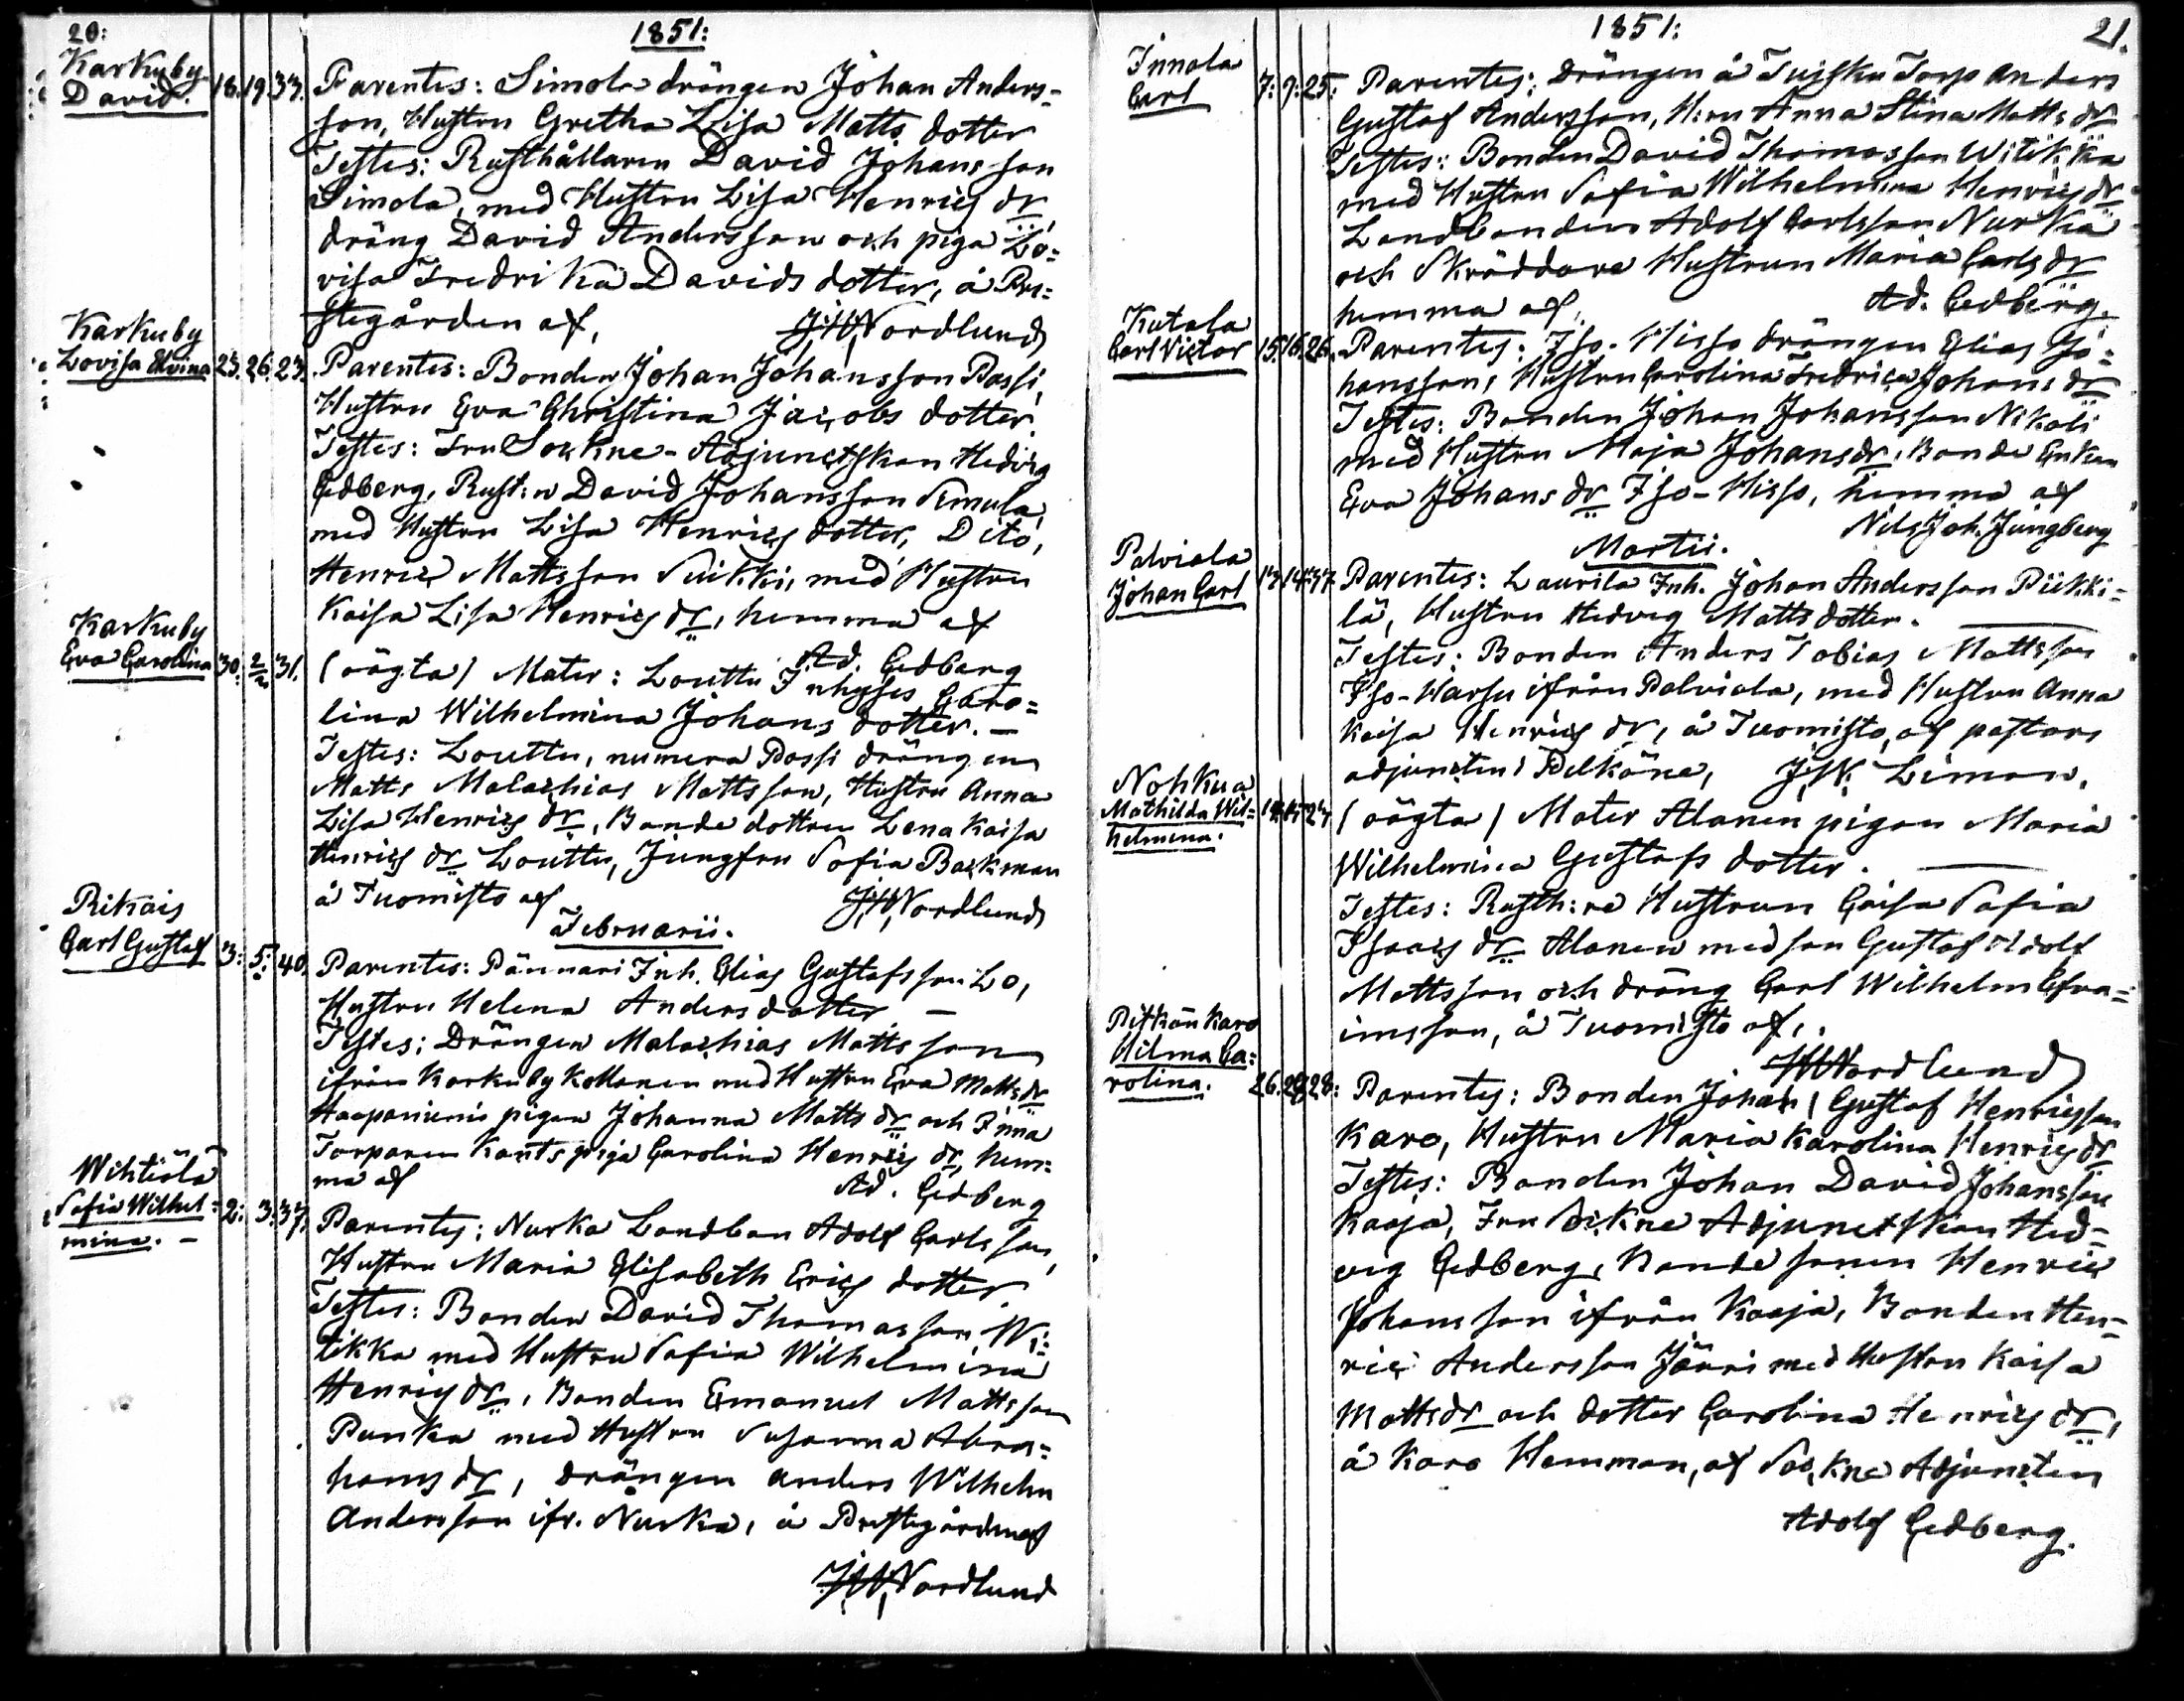 20:
1851:
Karkuby
David.
18. 19. 33.
Parentes: Simola drängen Johan Anders-
son, Hustru Gretha Lisa Matts dotter
Testes: Rusthållaren David Johansson
Simola, med Hustru Lisa Henrics dr,
dräng David Andersson och piga Lo-
visa Fredrika Davids dotter, å Pre-
stegården af,
J,W,Nordlund
Karkuby
Lovisa Elvina
25. 26. 23.
Parentes: Bonden Johan Johansson Possi,
Hustru Eva Christina Jacobs dotter
Testes: Fru Sockne-Adjunctskan Hedvig
Cedberg, Rust:n David Johansson Simula,
med Hustru Lisa Henrics dotter, Dito,
Henric Mattsson Suikki, med Hustru
Kaisa Lisa Henrics dr, hemma af
Ad. Cedberg
Karkuby
Eva Carolina
30. 2/2 31.
(oägta) Mater: Louttu Inhyses Caro-
lina Wilhelmina Johans dotter. –
Testes: Louttu, numera Possi drängen
Matts Malachias Mattsson, Hustru Anna
Lisa Henrics dr, Bonde dottren Lena Kaisa
Henrics dr Louttu, Jungfru Sofia Backman
å Tuomisto af
J,W,Nordlund
Februarii.
Rikais
Carl Gustaf
3: 5: 40.
Parentes: Pännäri Inh. Elias Gustafsson Lo,
Hustru Helena Anders dotter –
Testes: Drängen Malachias Mattsson
ifrån Karkuby Kollanen med Hustru Eva Matts dr
Haapaniemi pigan Johanna Matts dr och Inna
Torparen Kants piga Carolina Henrics dr, hem-
ma af
Ad. Cedberg
Wihtiälä
Sofia Wilhel-
mina. –
2: 3. 37.
Parentes: Nurka Landbon Adolf Carlsson,
Hustru Maria Elisabeth Erics dotter
Testes: Bonden David Thomasson Wi-
tikka med Hustru Sofia Wilhelmina
Henrics dr, Bonden Emanuel Mattsson
Punka med Hustru Susanna Abra-
hams dr, drängen Anders Wilhelm
Andersson ifr. Nurka, å Prestegården af
J,W,Nordlund
1851:
21.
Innala
Carl
7: 9: 25:
Parentes: drängen å Tuisku Torp Anders
Gustaf Andersson, H:ru Anna Stina Matts dr
Testes: Bonden David Thomasson Witikka
med Hustru Sofia Wilhelmina Henrics dr
Landbonden Adolf Carlsson Nurka
och Skräddare Hustrun Maria Carls dr
hemma af,
Ad. Cedberg.
Kutala
Carl Victor
15. 16. 26.
Parentes: Iso-Hisso drängen Elias Jo-
hansson, Hustru Carolina Fredrica Johans dr
Testes: Bonden Johan Johansson Nikoli
med Hustru Maja Johans dr, Bonde Enkan
Eva Johans dr Iso-Hisso, hemma af
Nils Joh. Jungberg
Martii.
Palviala
Johan Carl
13. 14. 37.
Parentes: Laurila Inh. Johan Andersson Piikki-
lä, Hustru Hedvig Matts dotter.
Testes: Bonden Anders Tobias Mattsson
Iso-Warsu ifrån Palviala, med Hustru Anna
Kaisa Henrics dr, å Tuomisto, af pastors
adjuncten i Pelkäne, J,W. Liman.
Nohkua
Mathilda Wil-
helmina.
(oägta) Mater Alanen pigan Maria
Wilhelmina Gustafs dotter.
Testes: Rusth:re Hustrun Caisa Sofia
Isaacs dr Alanen med son Gustaf Adolf
Mattsson och dräng Carl Wilhelm Efra-
imsson, å Tuomisto af,.
J,W,Nordlund
Pitkän Karo
Hilma Ca-
rolina.
Parentes: Bonden Johan Gustaf Henricsson
Karo, Hustru Maria Karolina Henrics dr
Testes: Bonden Johan David Johansson
Kaaja, Fru Sockne Adjunctskan Hed-
vig Cedberg, Bonde sonen Henric
Johansson ifrån Kaaja, Bonden Hen-
ric Andersson Järri med Hustru Kaisa
Matts dr och dotter Carolina Henrics dr,
å Karo Hemman, af Sockne Adjuncten
Adolf Cedberg.